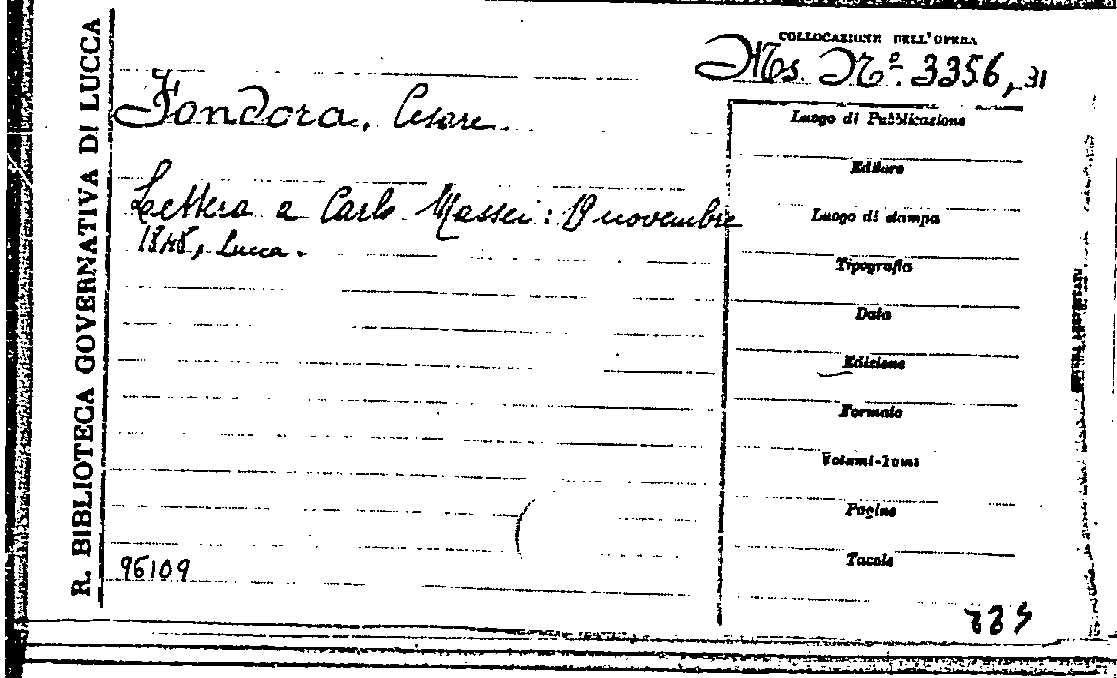 R. BIBLIOTECA GOVERNATIVA DI LUCCA
COLLOCAZIONE DELL'OPERA
Ms. Nº. 3356, 31
Fondora, Cesare.
Lettera a Carlo Massei: novembre
Lucca.
Luogo di Pubblicazione
Editore
Luogo di stampa
Tipografia
Data
Edizione
Formato
Volumi-Tomi
Pagine
Tavole
96109